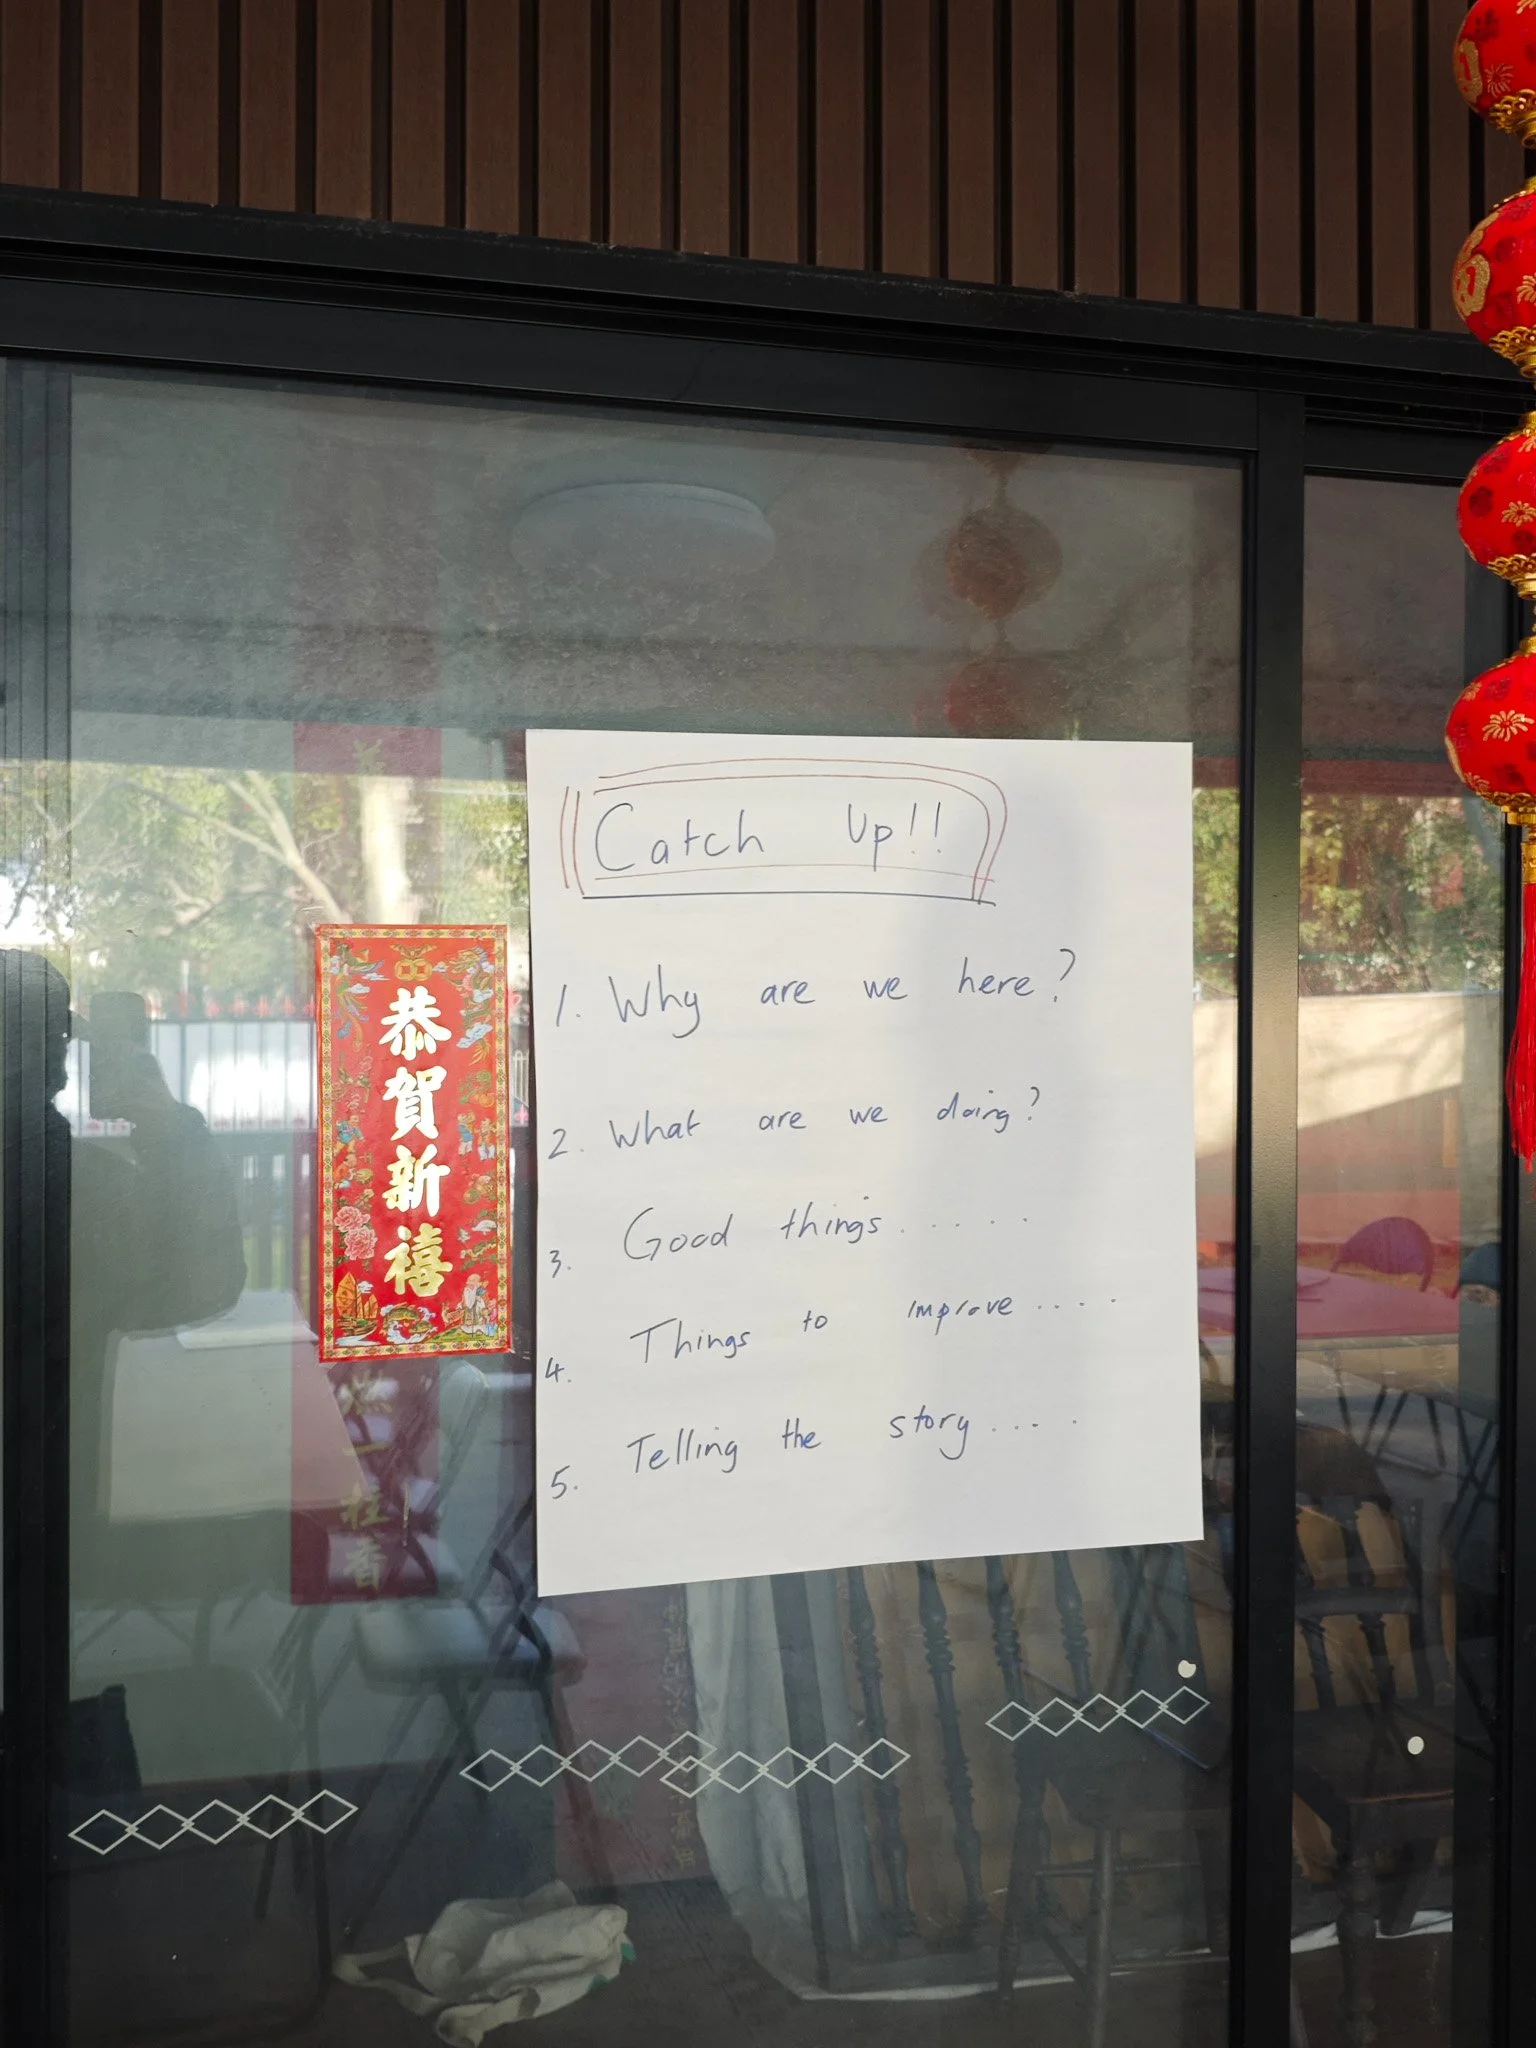 Catch Up!!
1. Why are we here?
2. What are we doing?
3. Good things.....
4. Things to improve....
5. Telling the story....
恭賀新禧
燃一炷香